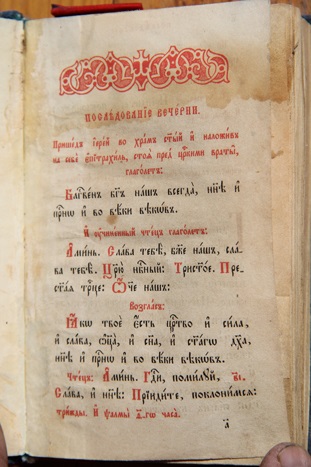 ПОСЛѢДОВАНІЕ ВЕЧЕРНИ.
Пришедъ іерей во храмъ ст҃ый и҆ наложивъ
на себѐ є҆пїтрахиль, стоѧ̀ пред̾ цр҃кими враты̀,
глаголетъ:
Бл҃гве́нъ бг҃ъ на́шъ всегда̀, нн҃ѣ и҆
при́снѡ и҆ во вѣ́ки вѣкѡ́въ.
И҆ ᲂу҆чиненный чтецъ глаголетъ:
А҆ми́нь. Сла́ва тебѣ̀, бж҃е на́шъ, сла́-
ва тебѣ̀. Цр҃ю̀ нбⷭ҇ный: Трист҃о́е. Пре-
ст҃а́ѧ трⷪ҇це: Ѻ҆́ч҃е на́шъ:
Возгласъ:
Ꙗ҆́кѡ твоѐ є҆́сть црⷭ҇тво и҆ си́ла,
и҆ сла́ва, ѻ҆ц҃а̀, и҆ сн҃а, и҆ ст҃а́гѡ дх҃а,
нн҃ѣ и҆ при́снѡ и҆ во вѣ́ки вѣкѡ́въ.
Чтецъ: А҆ми́нь. Гдⷭ҇и, поми́лꙋй, в҃і.
Сла́ва, и҆ нн҃ѣ: Прїиди́те, поклони́мсѧ:
трижды. И҆ ѱалмы̀ ѳ҃-гѡ часа̀.
а҃